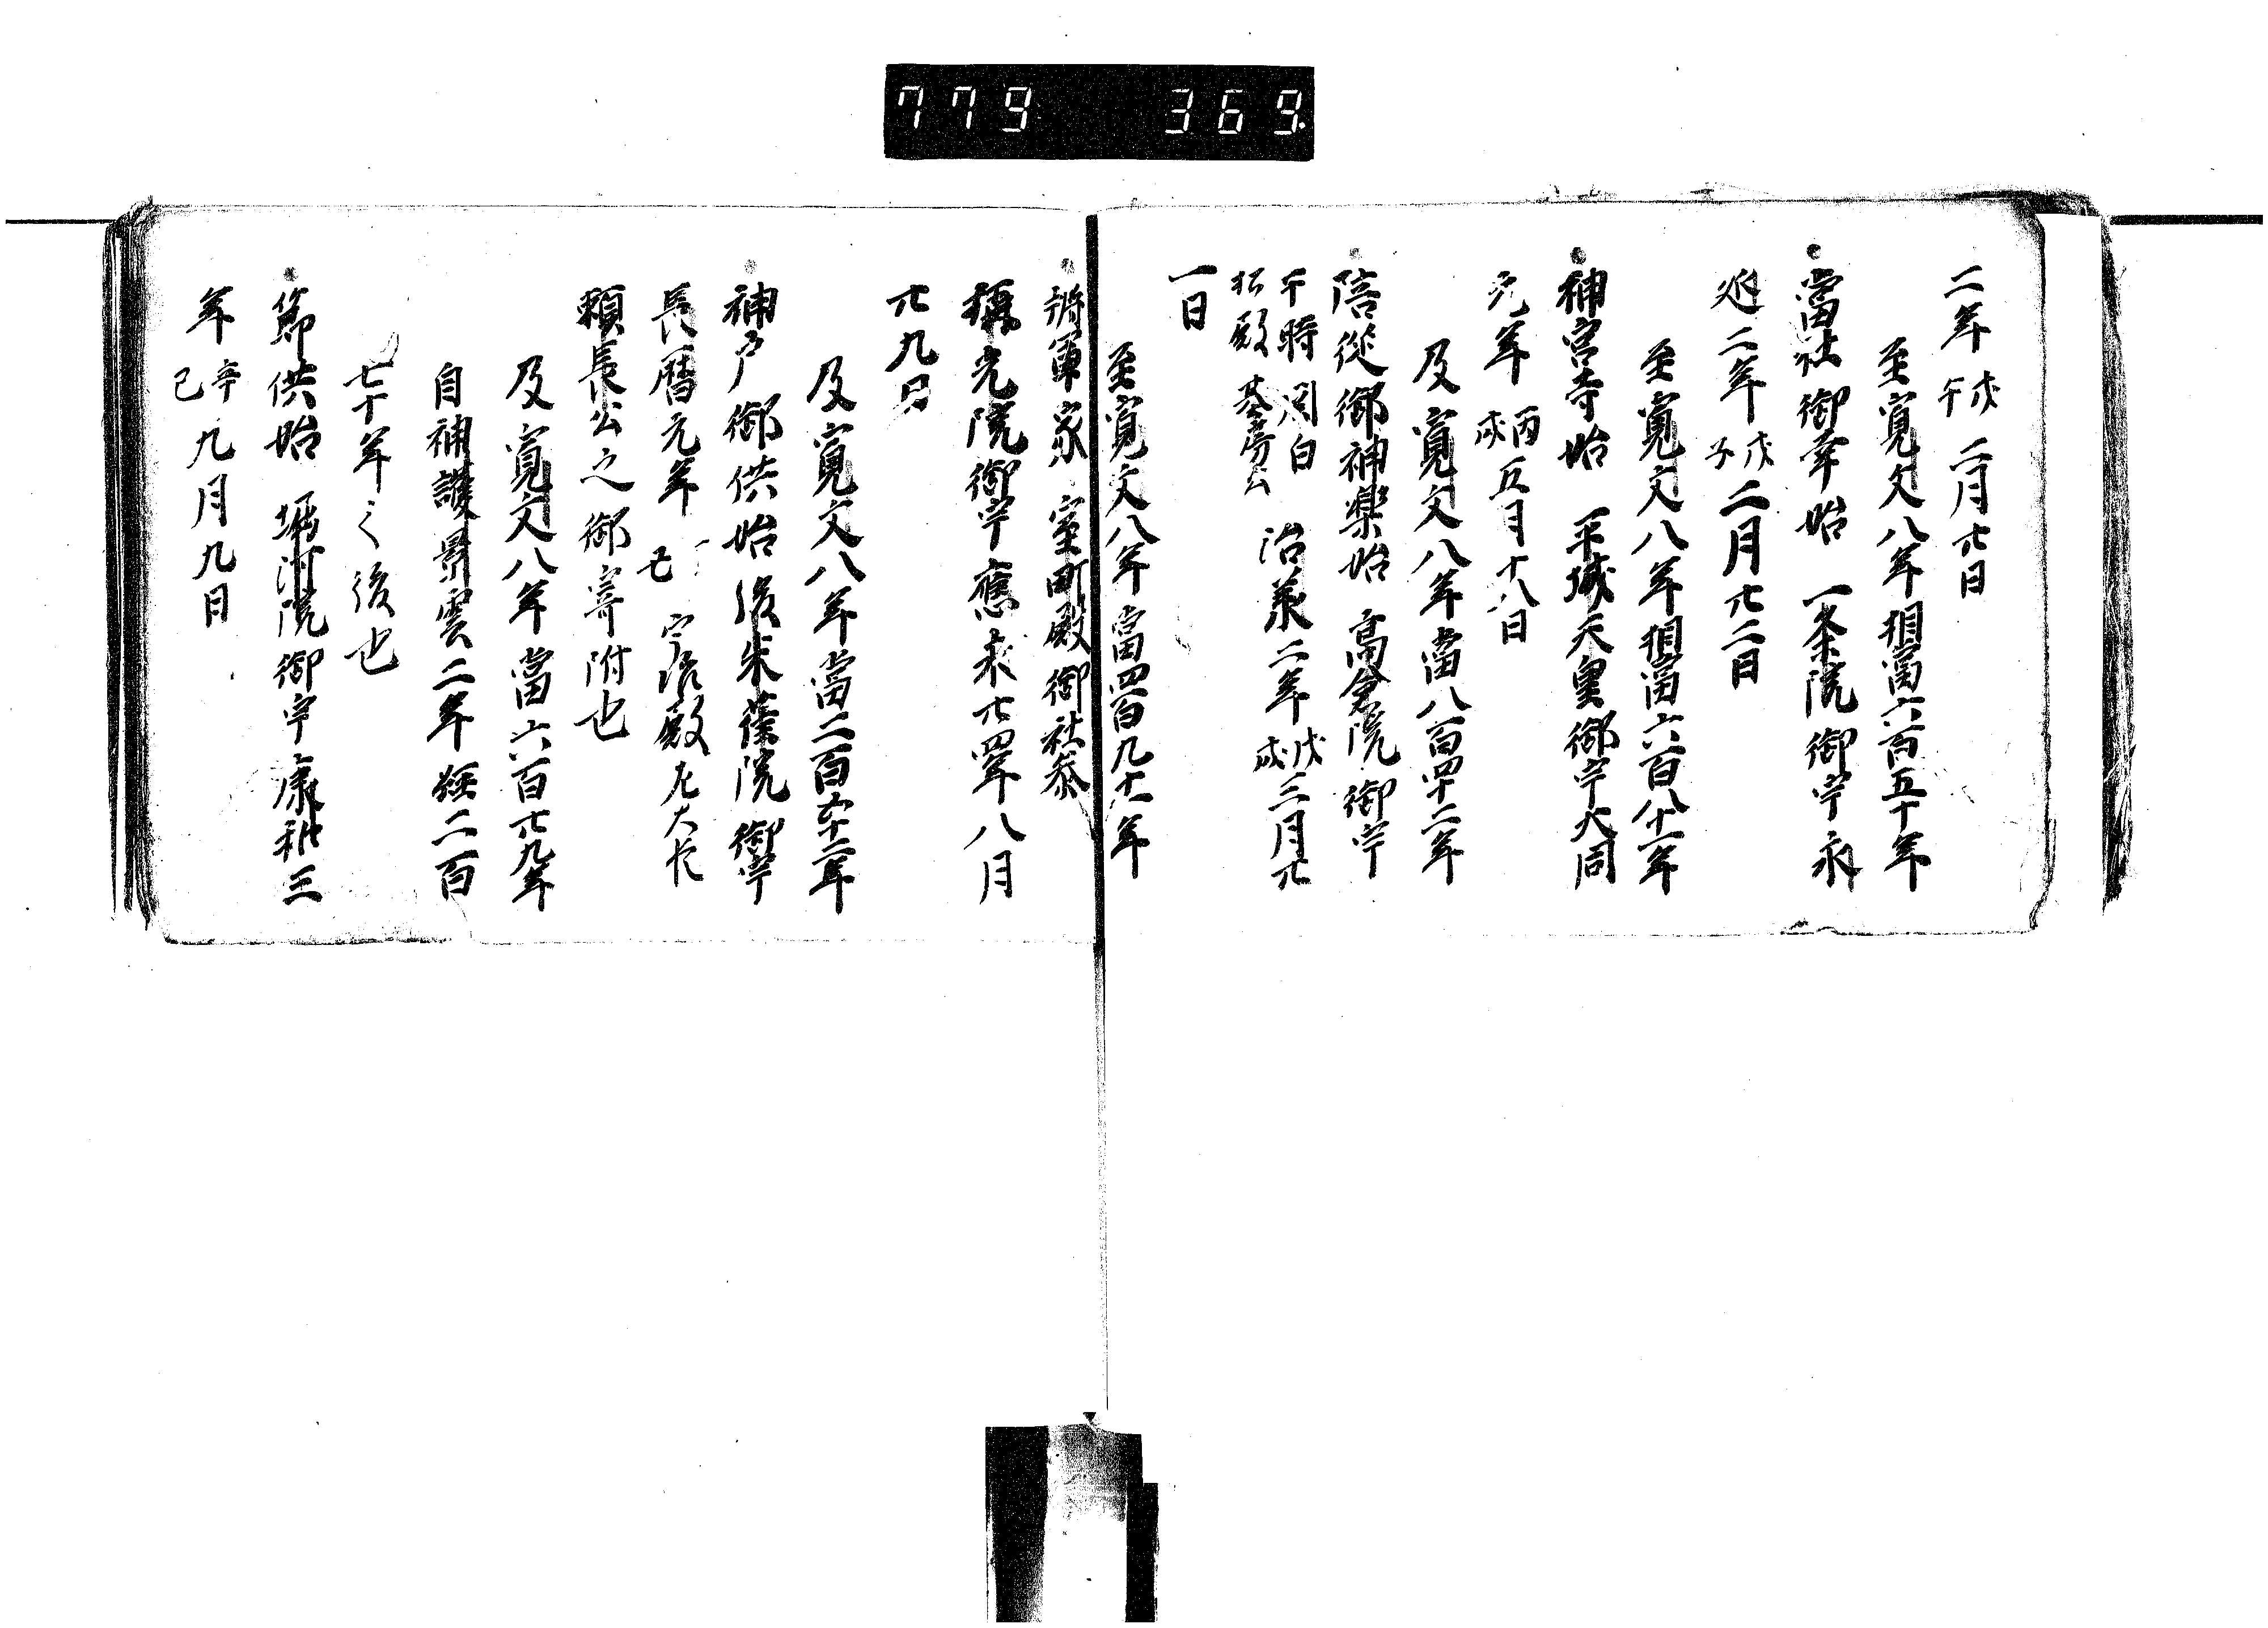 779 369
二年戊午二月廿日
至寛文八年相當六百五十年
當社御幸始 一条院御宇永
延二年戊子二月廿二日
至寛文八年相當六百八十一年
神宮寺始 平城天皇御宇大同
元年丙戌五月十八日
及寛文八年當八百四十二年
陪従御神楽始 高倉院御宇
于時関白
松殿基房公 治承二年戊戌三月廿
一日
至寛文八年當四百九十一年
将軍家 室町殿御社参
稱光院御宇應永廿四年八月
廿九日
及寛文八年當二百五十二年
神戸御供始 後朱雀院御宇
長暦元年 宇治殿左大臣
頼長公之御寄附也
及寛文八年當六百廿九年
自神護景雲二年経二百
七十年之後也
節供始 堀河院御宇康和三
年辛巳九月九日